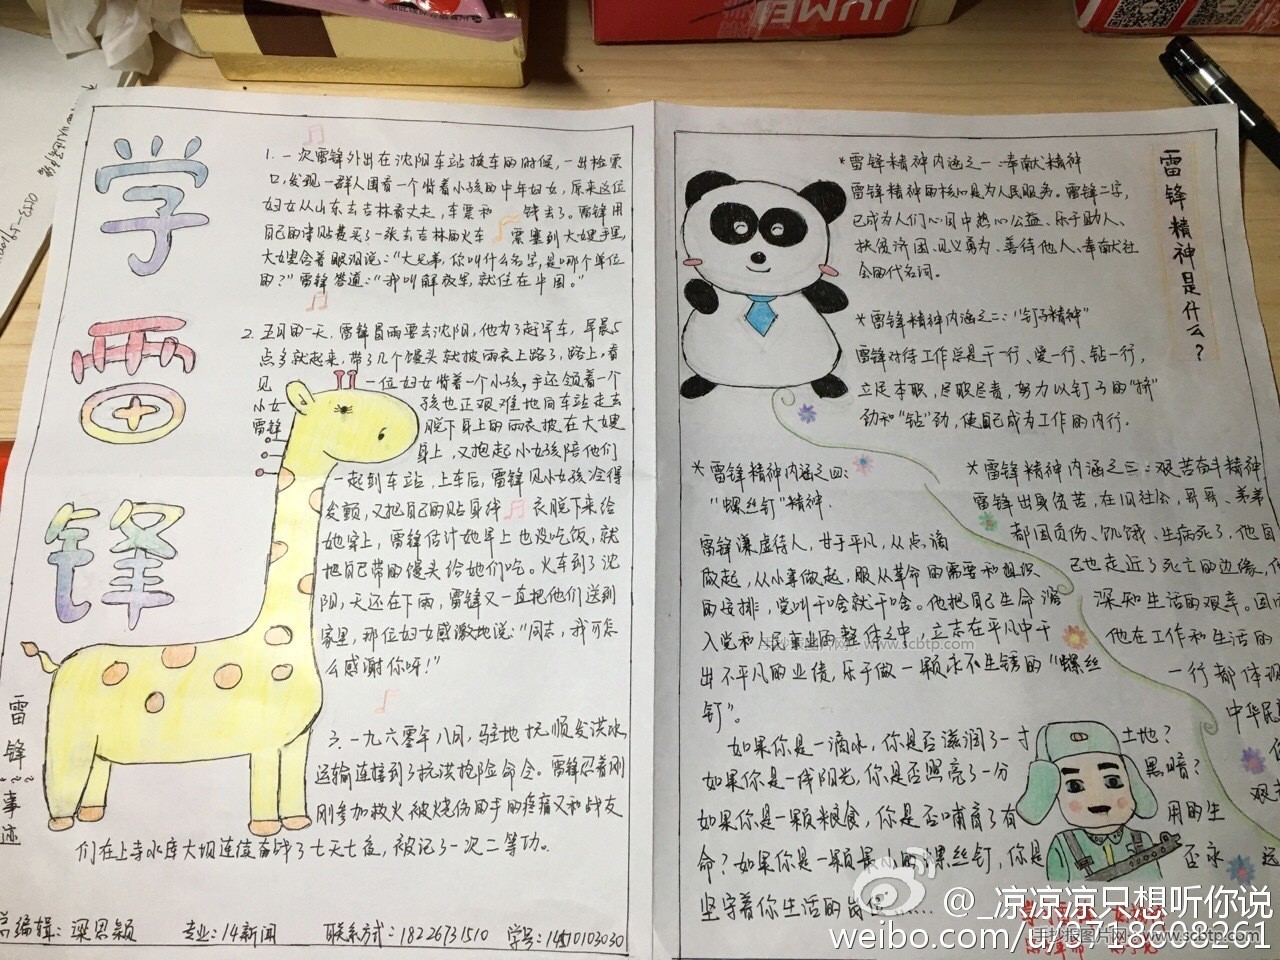 学雷锋
雷锋事迹
1. 一次雷锋外出在沈阳车站换车的时候，一出检票
口，发现一群人围着一个背着小孩的中年妇女，原来这位
妇女从山东去吉林看丈夫，车票和 钱丢了。雷锋用
自己的津贴费买了一张去吉林的火车 票塞到大嫂手里，
大嫂含着眼泪说：“大兄弟，你叫什么名字，是哪个单位
的？”雷锋答道：“我叫解放军，就住在中国。”
2. 五月的一天，雷锋冒雨要去沈阳，他为了赶早车，早晨5
点多就起来，带了几个馒头就披雨衣上路了，路上，看
见 一位妇女背着一个小孩，手还领着一个
小女 孩也正艰难地向车站走去
雷锋 脱下身上的雨衣披在大嫂
身上，又抱起小女孩陪他们
一起到车站，上车后，雷锋见小女孩冷得
发颤，又把自己的贴身线 衣脱下来给
她穿上，雷锋估计她早上也没吃饭，就
把自己带的馒头给她们吃。火车到了沈
阳，天还在下雨，雷锋又一直把他们送到
家里，那位妇女感激地说：“同志，我可怎
么感谢你呀！”
3. 一九六零年八月，驻地抚顺发洪水，
运输连接到了抗洪抢险命令。雷锋忍着刚
刚参加救火被烧伤的手的疼痛又和战友
们在上寺水库大坝连续奋战了七天七夜，被记了一次二等功。
编辑：梁思颖 专业：14新闻 联系方式：18226731510 学号：1410103030
雷锋精神是什么？
*雷锋精神内涵之一：奉献精神
雷锋精神的核心是为人民服务。雷锋二字，
已成为人们心目中热心公益、乐于助人、
扶贫济困、见义勇为、善待他人、奉献社
会的代名词。
*雷锋精神内涵之二：“钉子精神”
雷锋对待工作总是干一行、爱一行、钻一行，
立足本职，尽职尽责，努力以钉子的“挤”
劲和“钻”劲，使自己成为工作的内行.
*雷锋精神内涵之三：艰苦奋斗精神
雷锋出身贫苦，在旧社会，哥哥、弟弟
都因负伤、饥饿、生病死了，他自
己也走近了死亡的边缘，
深知生活的艰辛。因而
他在工作和生活的
一行都体现
中华民
艰
*雷锋精神内涵之四：
“螺丝钉”精神.
雷锋谦虚待人，甘于平凡，从点滴
做起，从小事做起，服从革命的需要和组织
的安排，党叫干啥就干啥。他把自己生命溶
入党和人民事业的整体之中，立志在平凡中干
出不平凡的业绩，乐于做一颗永不生锈的“螺丝
钉”。
如果你是一滴水，你是否滋润了一寸 土地？
如果你是一线阳光，你是否照亮了一分 黑暗？
如果你是一颗粮食，你是否哺育了有 用的生
命？如果你是一颗最小的螺丝钉，你是 否永 远
坚守着你生活的岗位……
手抄报图片网 www.scbtp.com
手抄报图片网 www.scbtp.com
@_凉凉凉只想听你说
weibo.com/u/5718608261
JUMEI